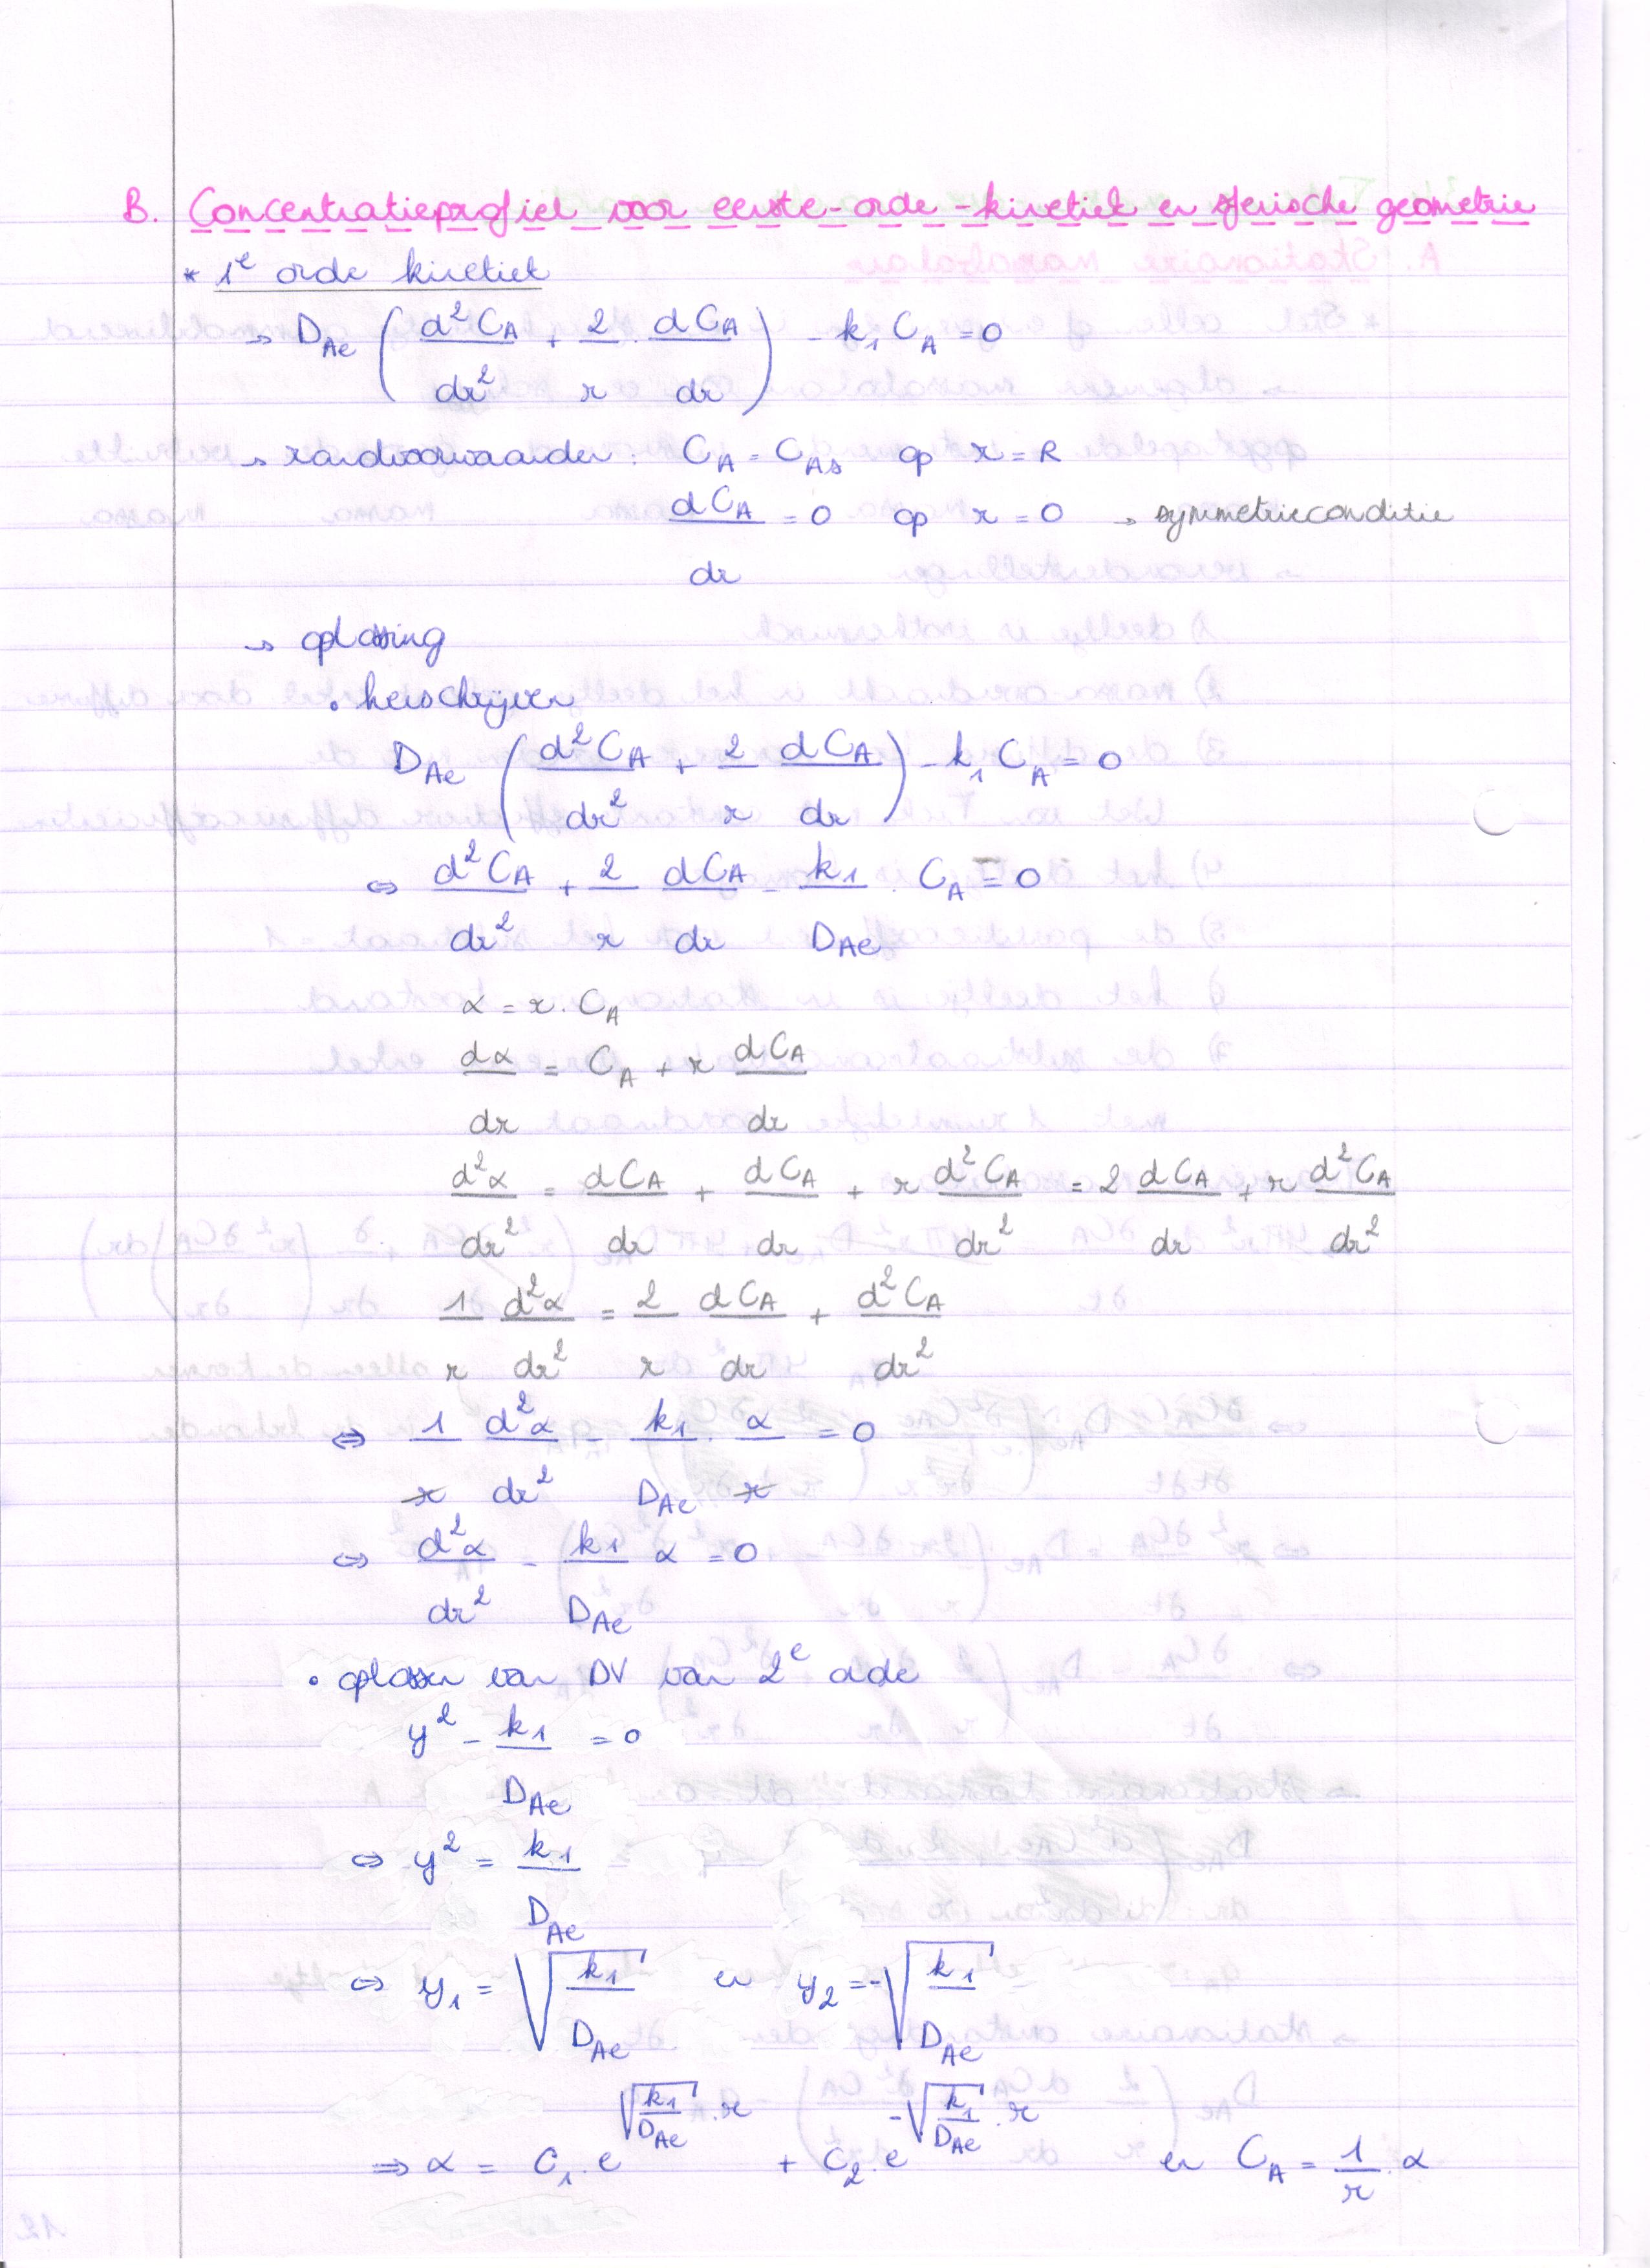 B. Concentratieprofiel voor eerste-orde-kinetiek en sferische geometrie
* 1e orde kinetiek
→ D_Ae (d²C_A/dr² + 2/r · dC_A/dr) - k₁C_A = 0
→ randvoorwaarden: C_A = C_As op r = R
dC_A/dr = 0 op r = 0 → symmetrieconditie
→ oplossing
• herschrijven
D_Ae (d²C_A/dr² + 2/r dC_A/dr) - k₁C_A = 0
⇔ d²C_A/dr² + 2/r dC_A/dr - k₁/D_Ae · C_A = 0
α = r · C_A
dα/dr = C_A + r dC_A/dr
d²α/dr² = dC_A/dr + dC_A/dr + r d²C_A/dr² = 2 dC_A/dr + r d²C_A/dr²
1/r d²α/dr² = 2/r dC_A/dr + d²C_A/dr²
⇔ 1/r d²α/dr² - k₁/D_Ae · α/r = 0
⇔ d²α/dr² - k₁/D_Ae α = 0
• oplossen van DV van 2e orde
y² - k₁/D_Ae = 0
⇔ y² = k₁/D_Ae
⇔ y₁ = √(k₁/D_Ae) en y₂ = -√(k₁/D_Ae)
⇒ α = C₁ · e^(√(k₁/D_Ae) · r) + C₂ · e^(-√(k₁/D_Ae) · r) en C_A = 1/r · α